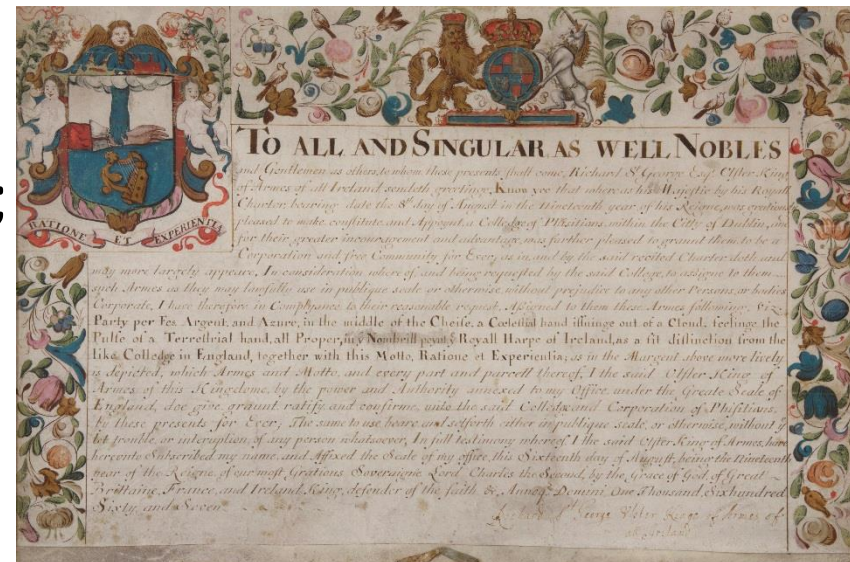 ;
RATIONE ET EXPERIENTIA
TO ALL AND SINGULAR, AS WELL NOBLES
and Gentlemen as others, to whom these presents shall come, Richard St George Esqr Ulster King
of Armes of all Ireland sendeth greeting. Know yee that where as his Majestie by his Royall
Charter bearing date the 8th day of August in the Nineteenth year of his Reigne, was graciously
pleased to make constitute and Appoynt a Colledge of Phisitians within the Citty of Dublin, and
for their greater incouragement and advantage, was further pleased to graunt them to be a
Corporation and free Community for Ever, as in and by the said recited Charter doth and
may more largely appeare, In consideration where of and being requested by the said College, to assigne to them
such Armes as they may lawfully use in publique seale or otherwise without prejudice to any other Persons, or bodies
Corporate, I have therefore in Complyance to their reasonable request, Assigned to them these Armes following, Viz.
Party per Fes Argent, and Azure, in the middle of the Cheife, a Coelestial hand issuinge out of a Cloud, feelinge the
Pulse of a Terrestrial hand, all Proper, in ye Nombrill poynt ye Royall Harpe of Ireland, as a fit distinction from the
like Colledge in England, together with this Motto, Ratione et Experientia, as in the Margent above more lively
is depicted, which Armes and Motto, and every part and parcell thereof, I the said Ulster King
Armes of this Kingdome, by the power and Authority annexed to my Office, under the Greate Seale of
England, doe give graunt ratify and confirme, unto the said Colledge and Corporation of Phisitians,
by these presents for Ever; The same to use beare and setforth either in publique seale, or otherwise, without ye
let trouble, or interuption, of any person whatsoever, In full testimony whereof I the said Ulster King of Armes, have
hereunto Subscribed my name, and Affixed the Seale of my office, this Sixteenth day of August, being the Nineteenth
year of the Reigne, of our most Gratious Soveraigne Lord Charles the Second, by the Grace of God, of Great
Brittaine, France, and Ireland, King, defender of the faith &c Annoq Domini, One Thousand, Sixhundred
Sixty, and Seven
Richard St George Ulster King of Armes of
all Ireland